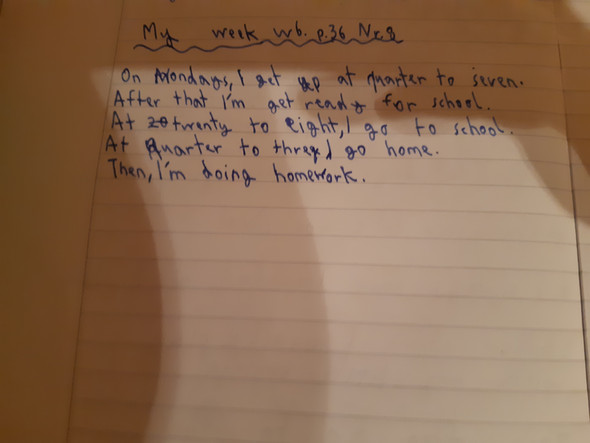 My week wb. p.36 Nr.2
On Mondays, I get up at quarter to seven.
After that I'm get ready for school.
At 20 twenty to eight, I go to school.
At Quarter to three, I go home.
Then, I'm doing homework.